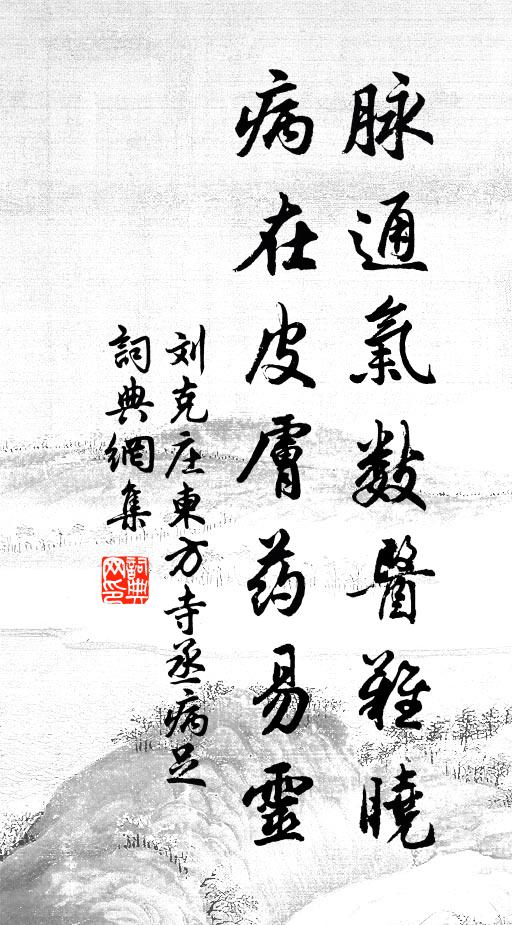 脉通氣数醫難曉
病在皮膚药易靈
刘克庄東方寺丞病足
詞典網集
詞典网印